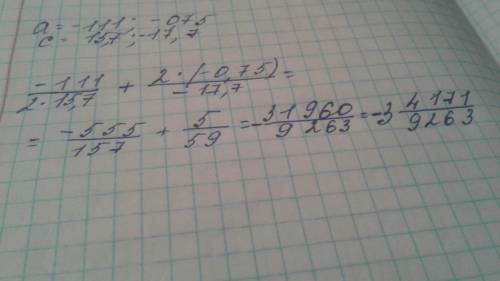 a = -111; -075
c = 15,7; -17,7
-111/2·15,7 + 2·(-0,75)/-17,7 =
= -555/157 + 5/59 = -31960/9263 = -3 4171/9263